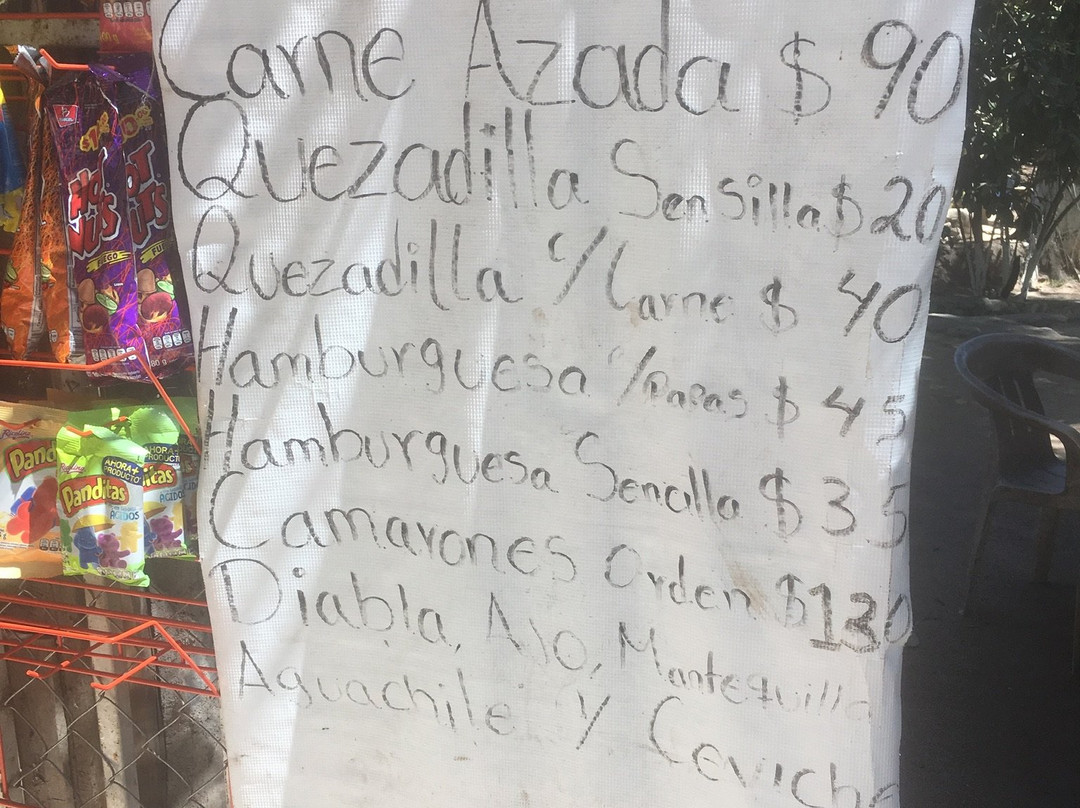 Carne Azada $ 90
Quezadilla Sensilla $ 20
Quezadilla c/Carne $ 40
Hamburguesa c/papas $ 45
Hamburguesa Sencilla $ 35
Camarones Orden $ 130
Diabla, AJO, Mantequilla
Aguachile Y Ceviche
HOT
NUTS
FUEGO
Panditas
AHORA+
PRODUCTO
Panditas
ÁCIDOS